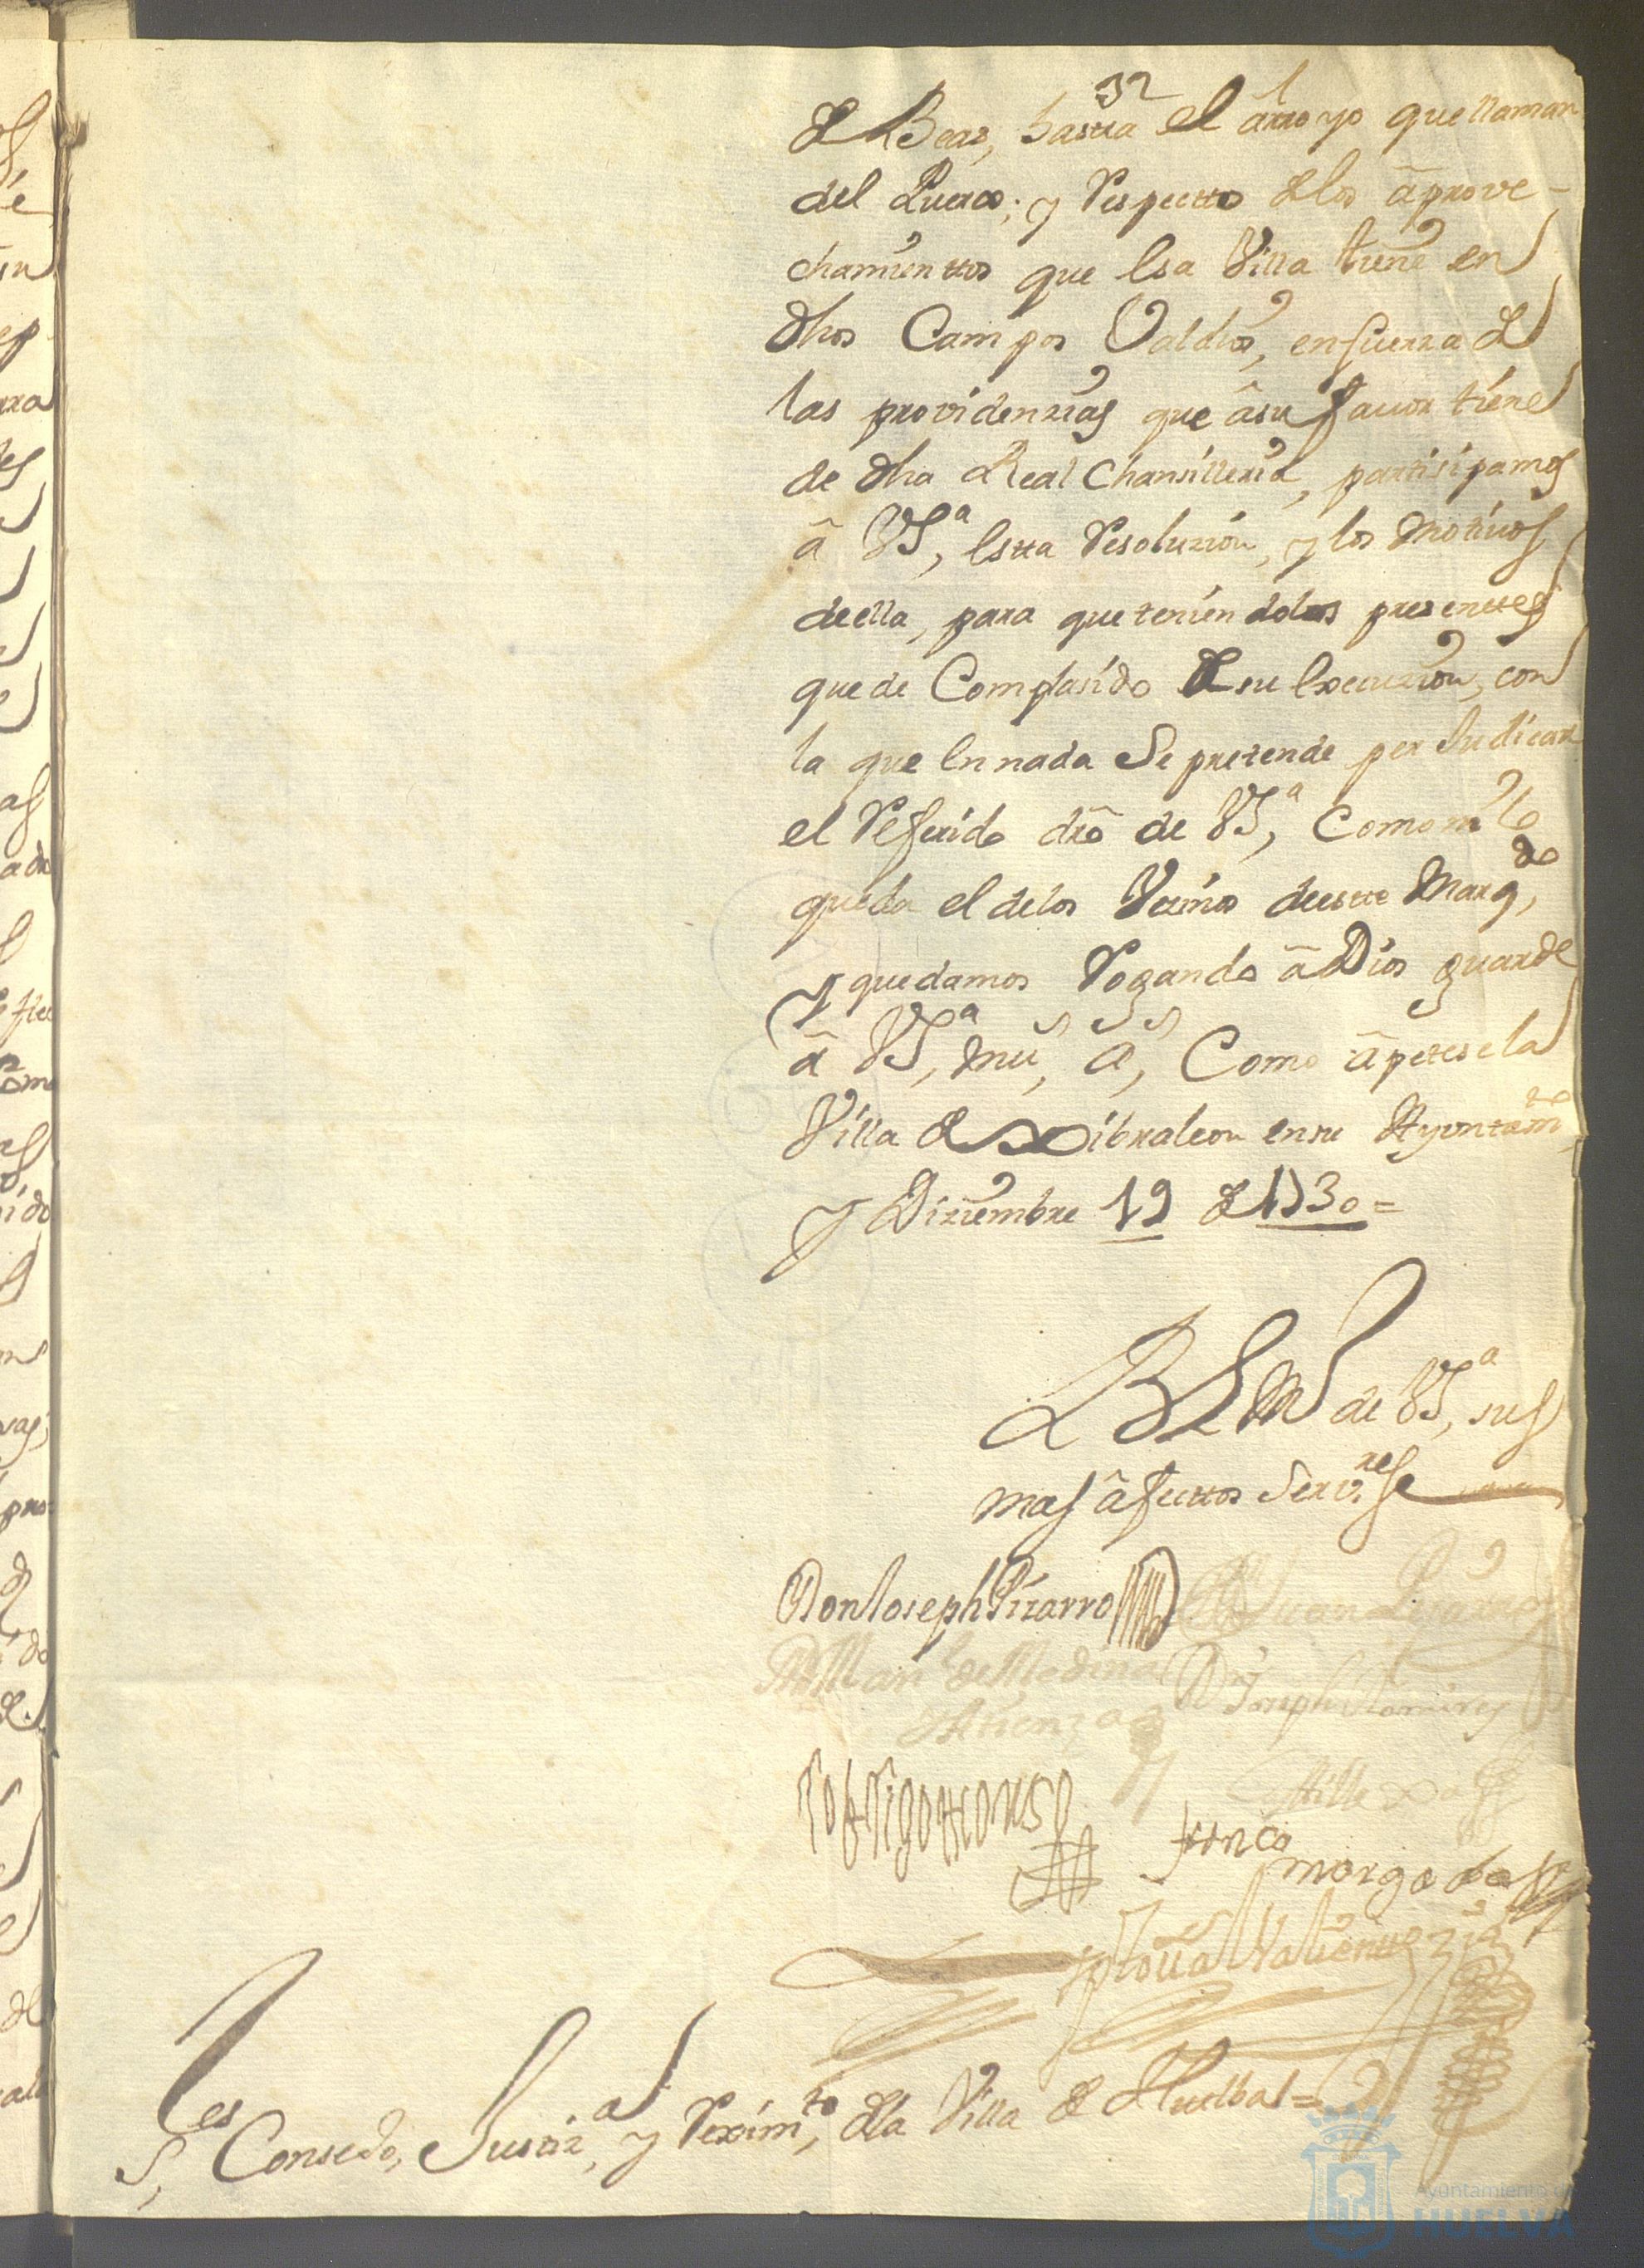 32
de Beas, hasta el ârroyo que llaman
del Puerco; y Respectto de los âprove-
chamienttos que esa Villa tiene en
dhos Campos Valdios, en fuerza de
las providenzias que âsu favor tiene
de dha Real Chansilleria, partisipamos
â VSª, estta Resoluzion, y los motivos
de ella, para que teniendolos presenttes
quede Complasido de su execuzion, con
la que en nada se pretende per Judicar
el Referido dro de VSª, Como ni lo
queda el de los Vezinos de estte Marqdo,
y quedamos Rogando â Dios guarde
â VSª, mus, as, Como âpetese la
Villa de Xibraleon en su Ayuntamto
y Diziembre 19 de 1730=
BLM de VSª, sus
mas âfecttos Servres
Don Joseph Pizarro
Dn Juan
Dn Manl de Medina Dn Joseph Ramires
Atienza
Castillexo
Rodrigo Alonso
franco
morgado
Valiente
Sres Consejo, Justizª, y Reximto, de la Villa de Huelba=
Ayuntamiento de
HUELVA